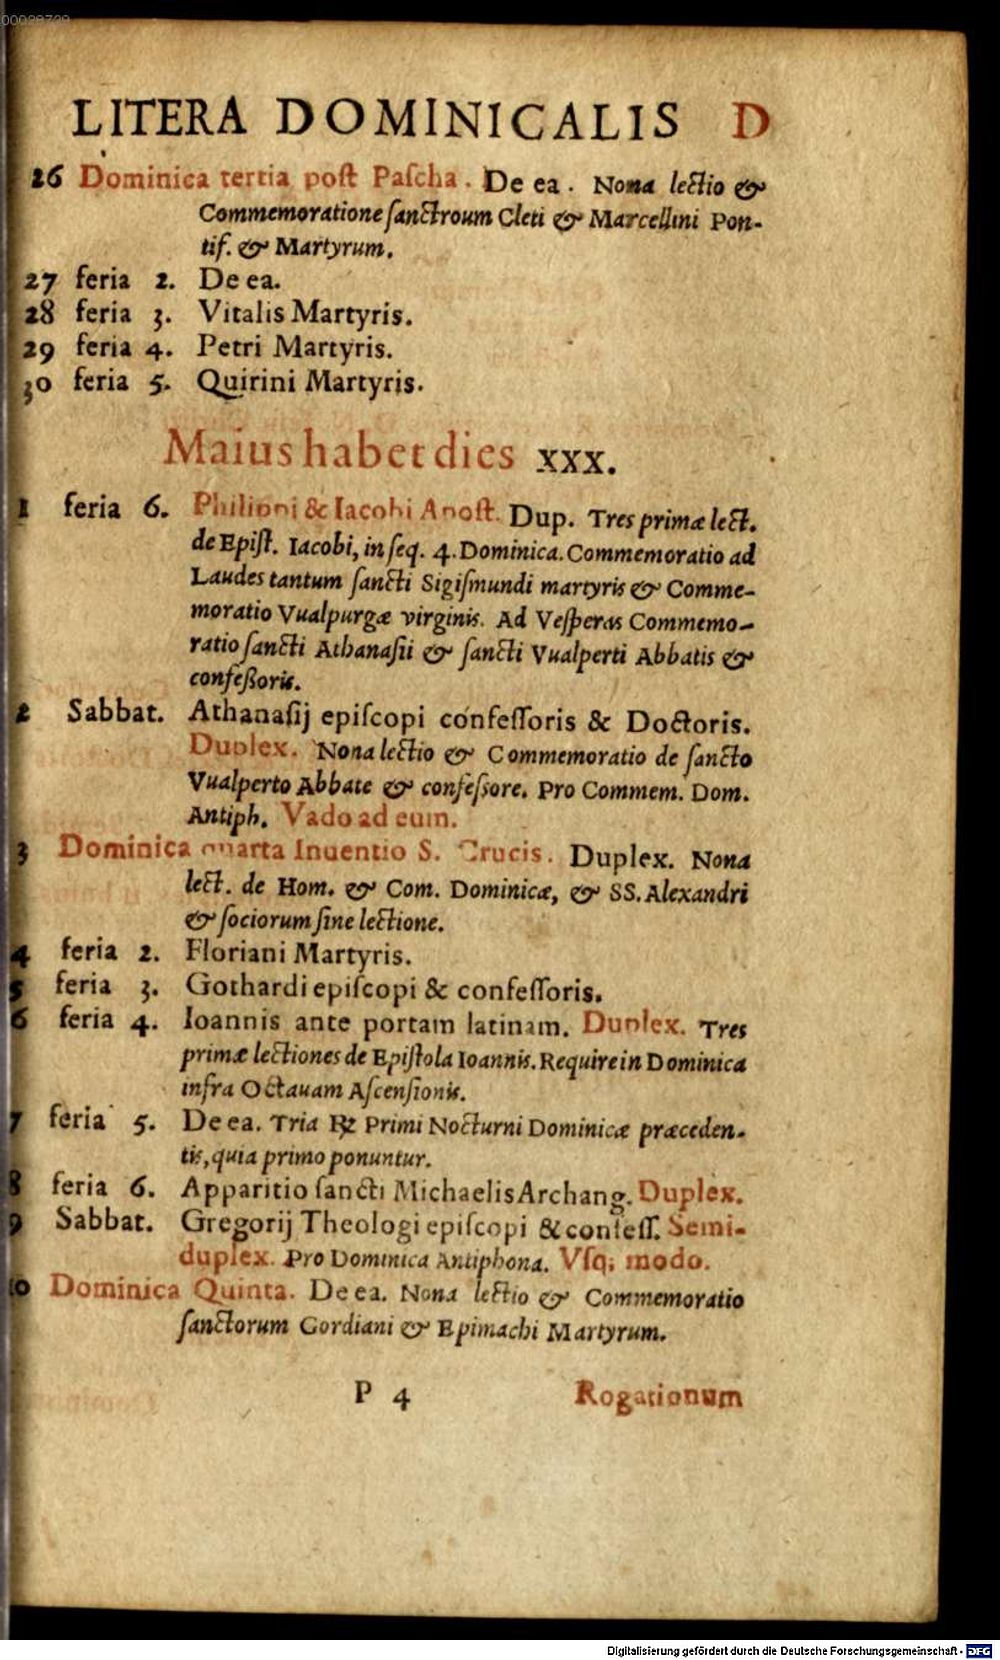 00029729
LITERA DOMINICALIS D
26 Dominica tertia poſt Paſcha. De ea. Nona lectio &
Commemoratione ſanctroum Cleti & Marcellini Pon-
tif. & Martyrum.
27 feria 2. De ea.
28 feria 3. Vitalis Martyris.
29 feria 4. Petri Martyris.
30 feria 5. Quirini Martyris.
Maius habet dies XXX.
1 feria 6. Philippi & Iacobi Apoſt. Dup. Tres primæ lect.
de Epiſt. Iacobi, in ſeq. 4. Dominica. Commemoratio ad
Laudes tantum ſancti Sigiſmundi martyris & Comme-
moratio Vualpurgæ virginis. Ad Veſperas Commemo-
ratio ſancti Athanaſii & ſancti Vualperti Abbatis &
confeßoris.
2 Sabbat. Athanaſij epiſcopi confeſſoris & Doctoris.
Duplex. Nona lectio & Commemoratio de ſancto
Vualperto Abbate & confeſſore. Pro Commem. Dom.
Antiph. Vado ad eum.
3 Dominica quarta Inuentio S. Crucis. Duplex. Nona
lect. de Hom. & Com. Dominicæ, & SS. Alexandri
& ſociorum ſine lectione.
4 feria 2. Floriani Martyris.
5 feria 3. Gothardi epiſcopi & confeſſoris.
6 feria 4. Ioannis ante portam latinam. Duplex. Tres
primæ lectiones de Epiſtola Ioannis. Require in Dominica
infra Octauam Aſcenſionis.
7 feria 5. De ea. Tria ℞ Primi Nocturni Dominicæ præceden-
tis, quia primo ponuntur.
8 feria 6. Apparitio ſancti Michaelis Archang. Duplex.
9 Sabbat. Gregorij Theologi epiſcopi & confeſſ. Semi-
duplex. Pro Dominica Antiphona. Vſq; modo.
10 Dominica Quinta. De ea. Nona lectio & Commemoratio
ſanctorum Gordiani & Epimachi Martyrum.
P 4 Rogationum
Digitalisierung gefördert durch die Deutsche Forschungsgemeinschaft - DFG